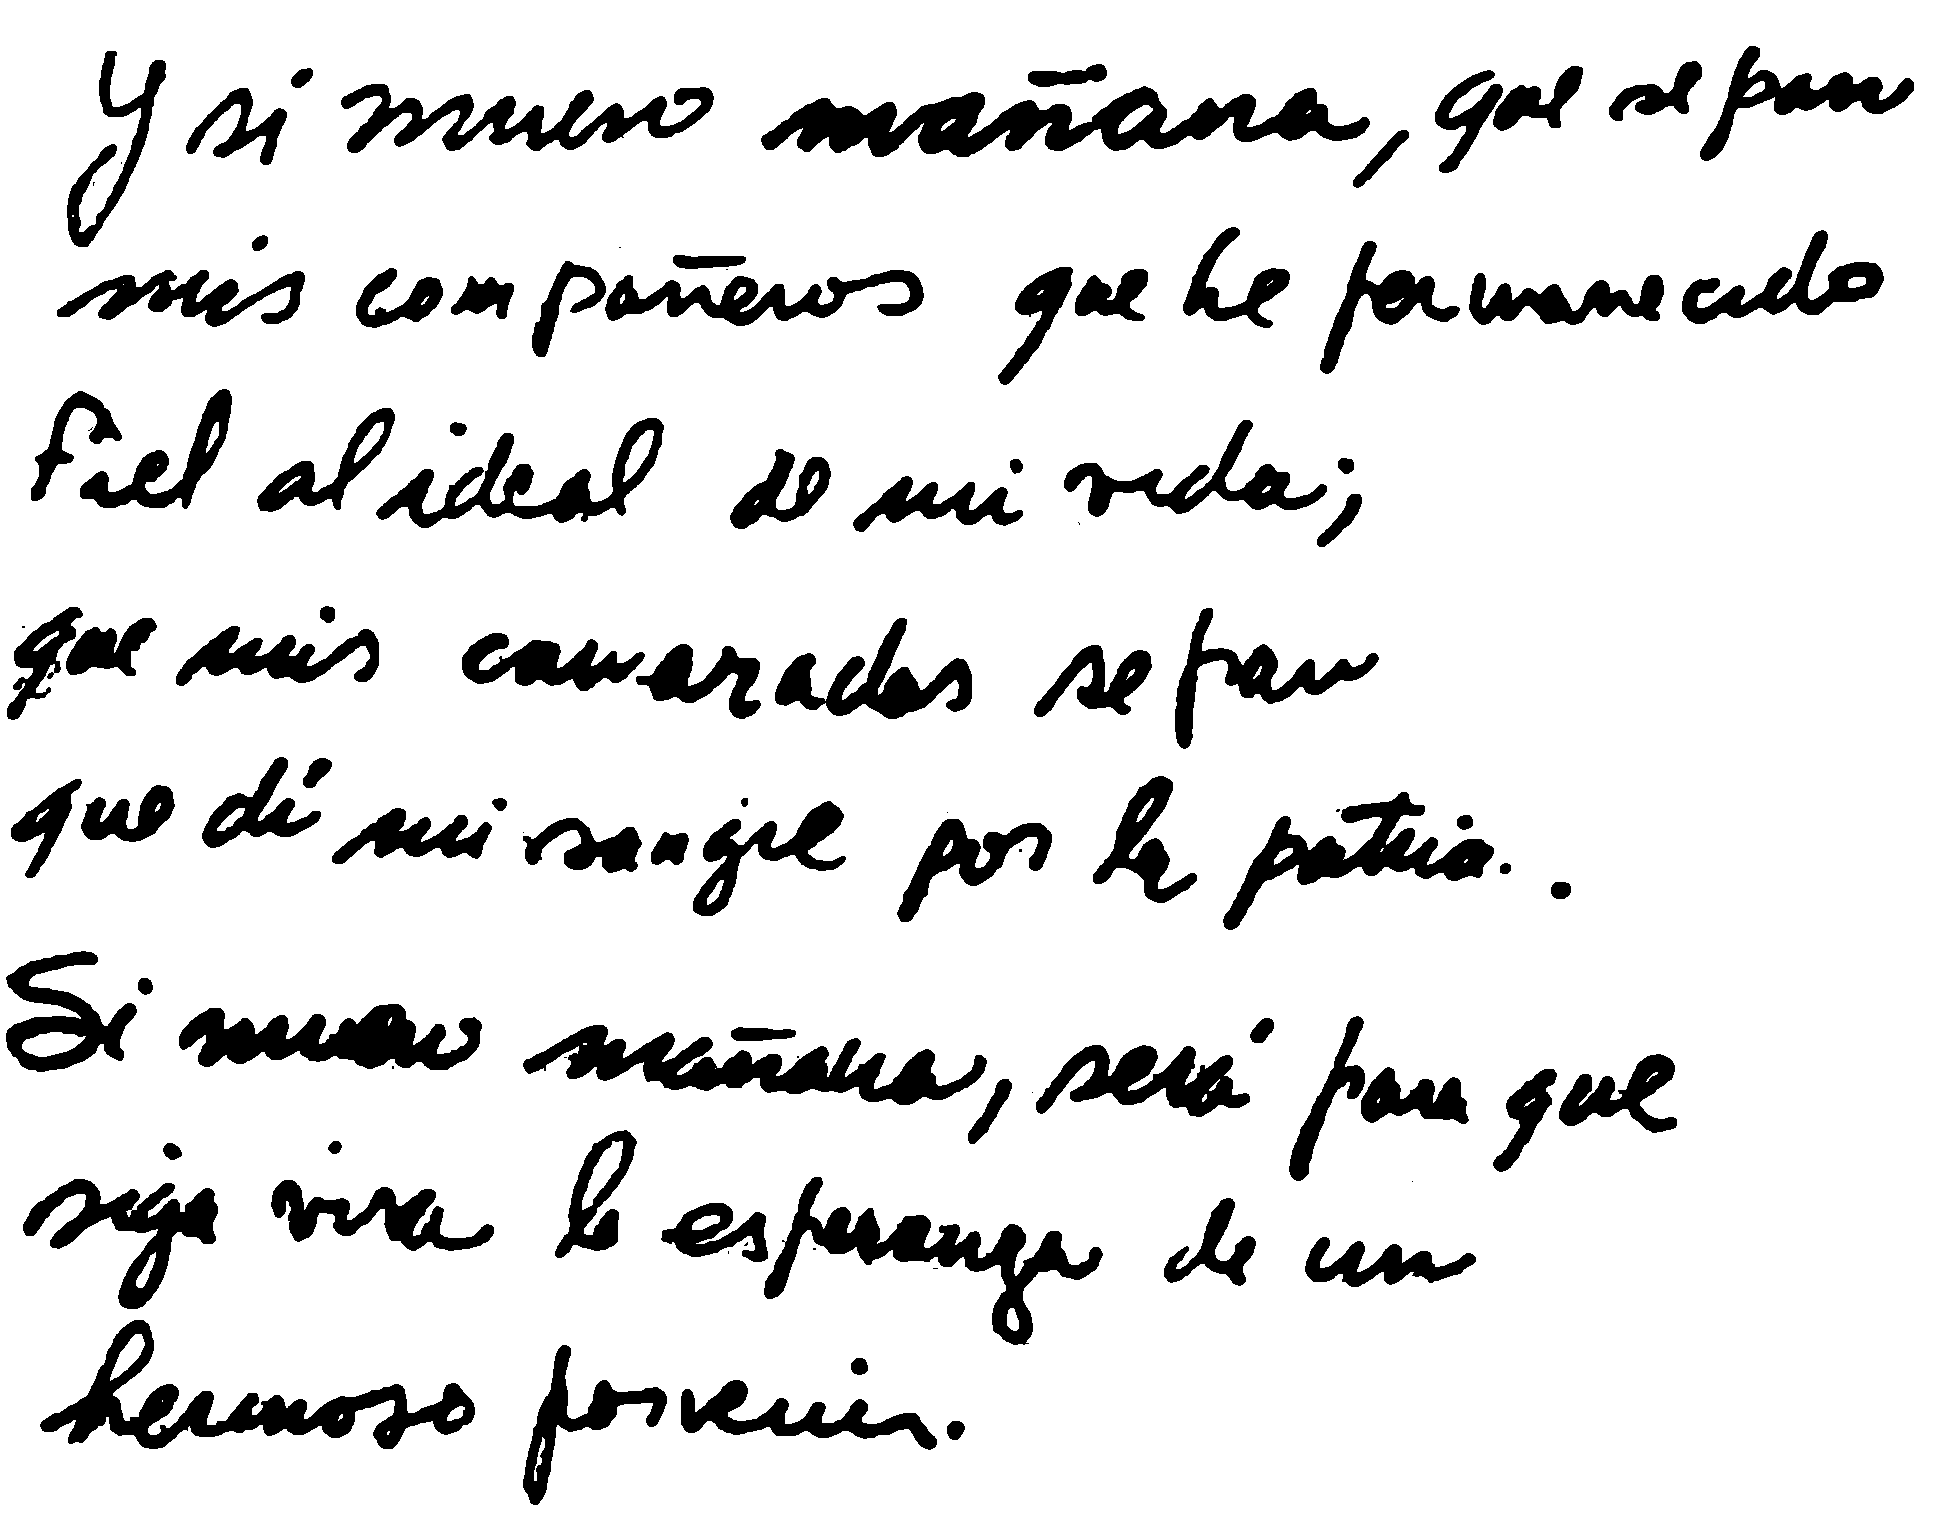 Y si muero mañana, que sepan
mis compañeros que he permanecido
fiel al ideal de mi vida;
que mis camaradas sepan
que dí mi sangre por la patria..
Si muero mañana, será para que
siga viva la esperanza de un
hermoso porvenir.